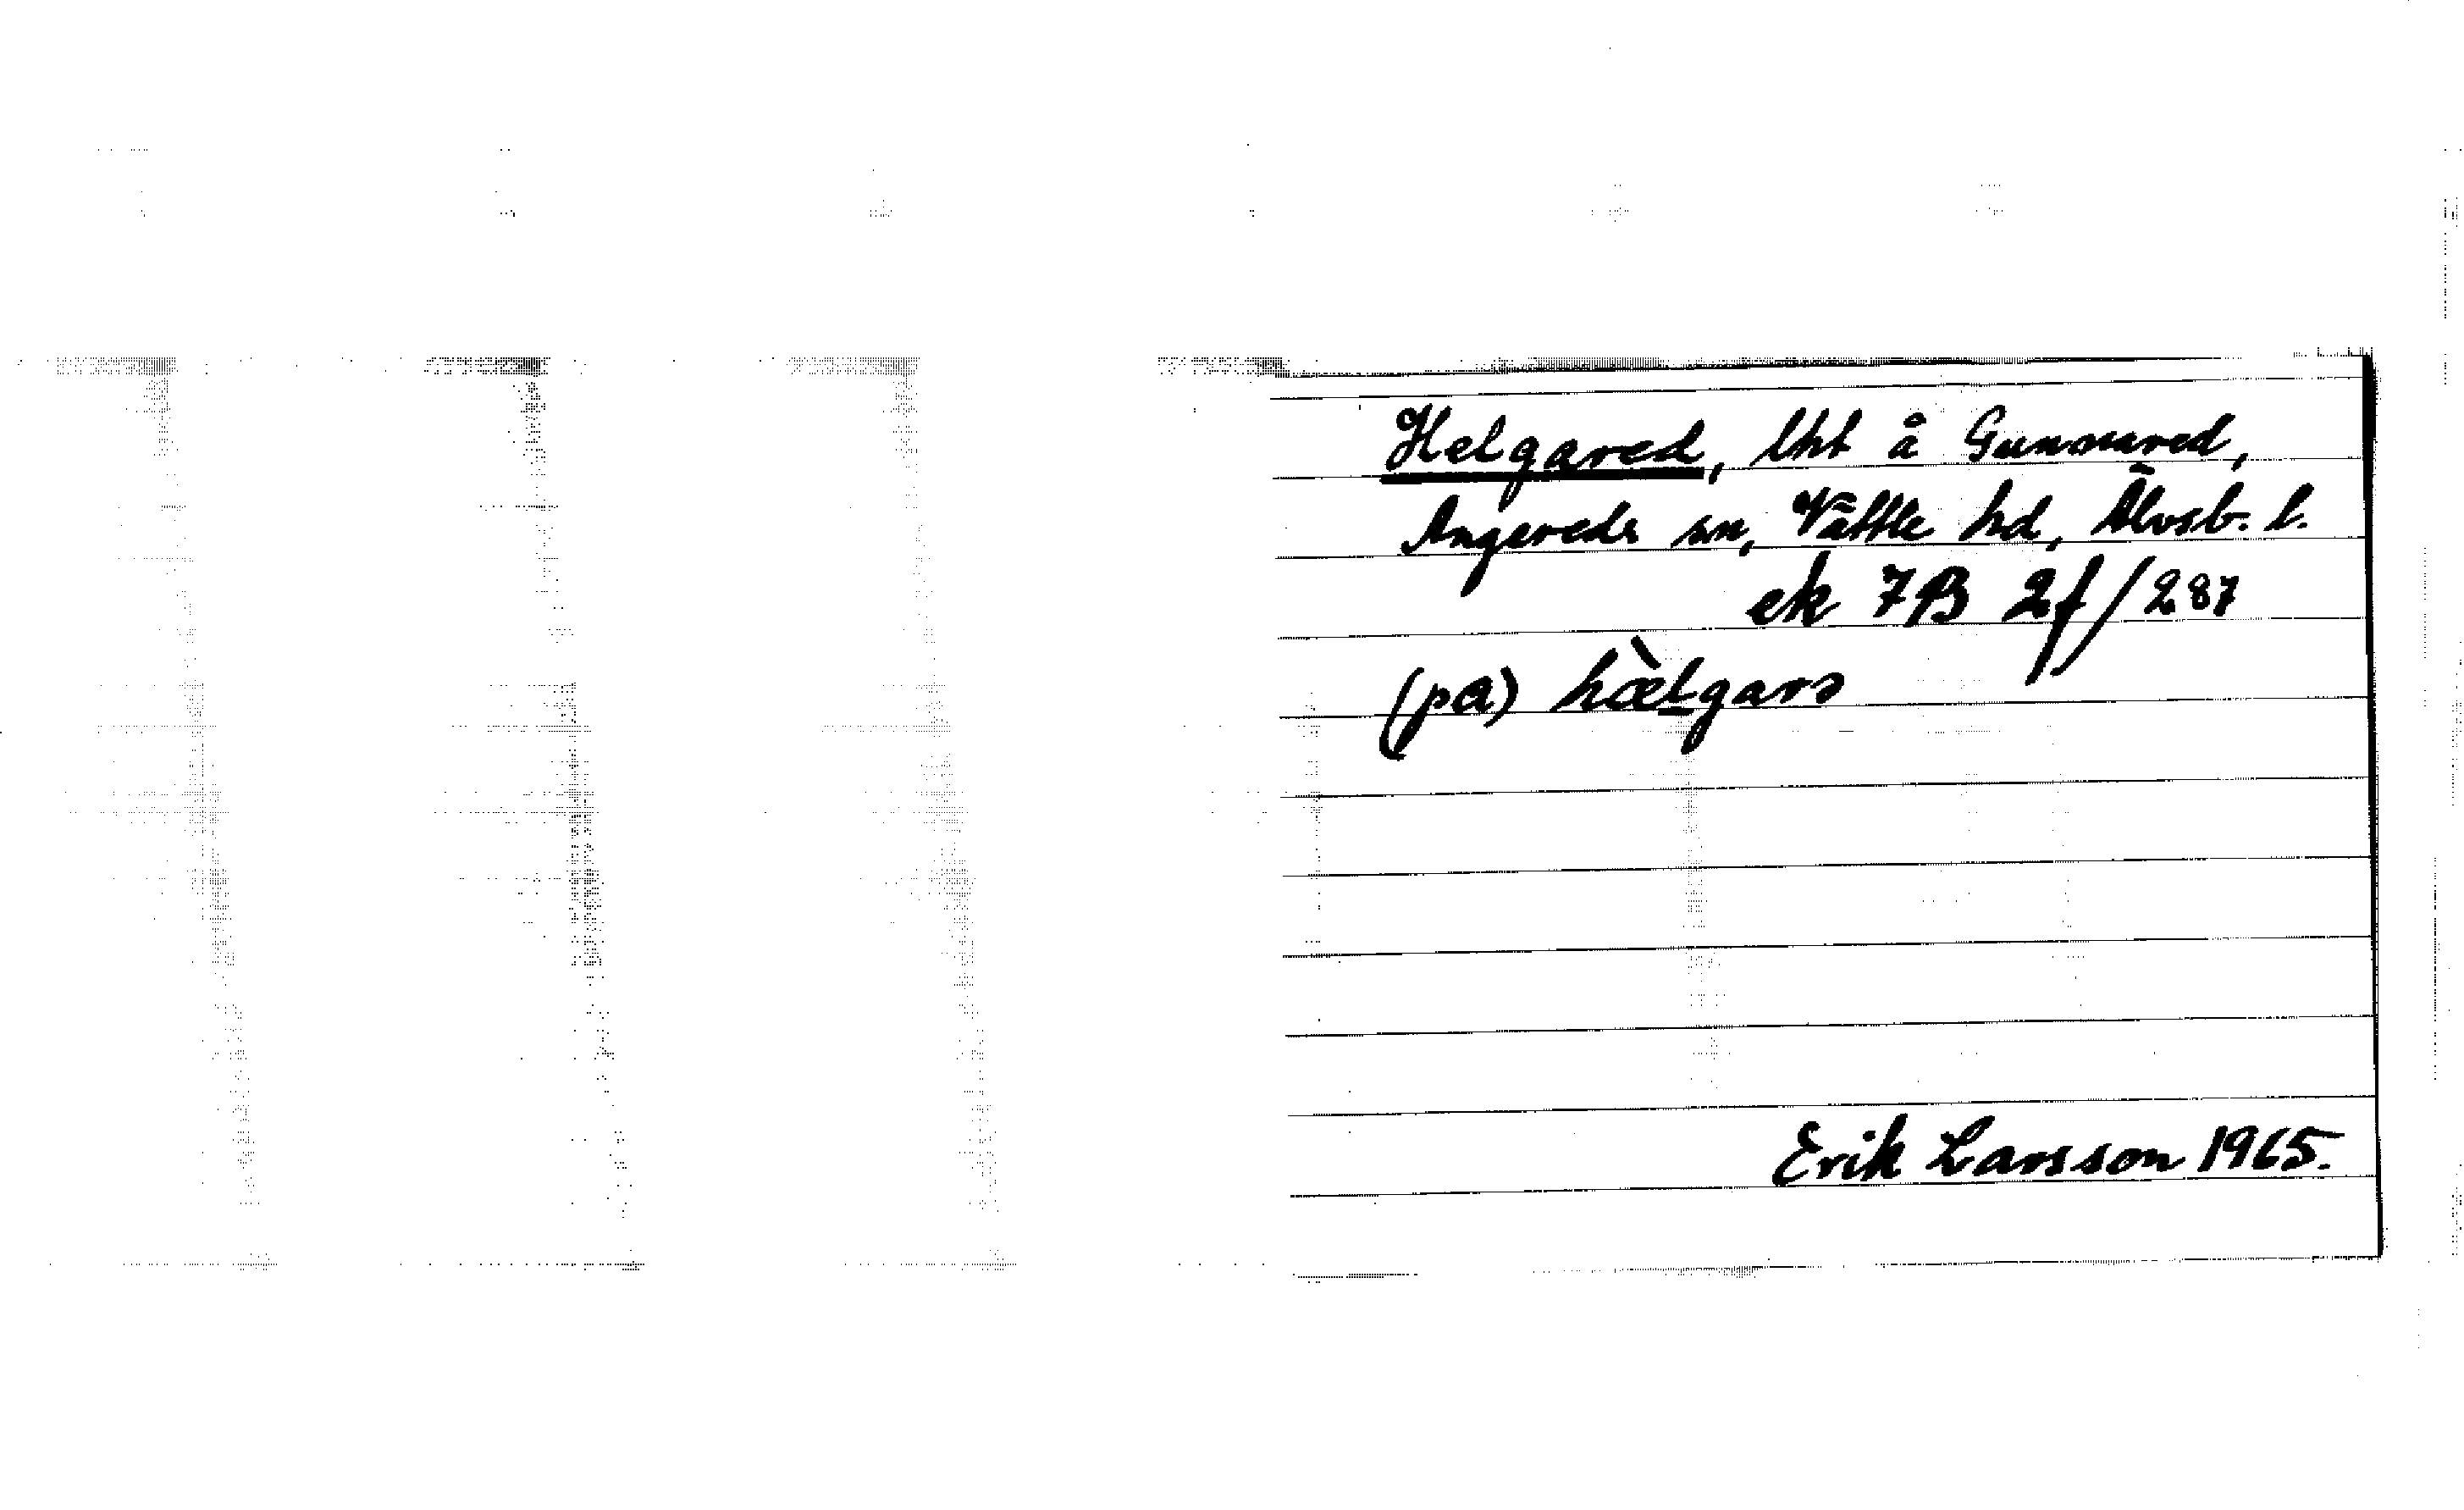 Helgared, lht å Gunnared,
Angereds sn, Vättle hd, Älvsb. l.
ek 7B 2f/287
(pa) hæ̀lgarə
Erik Larsson 1965.